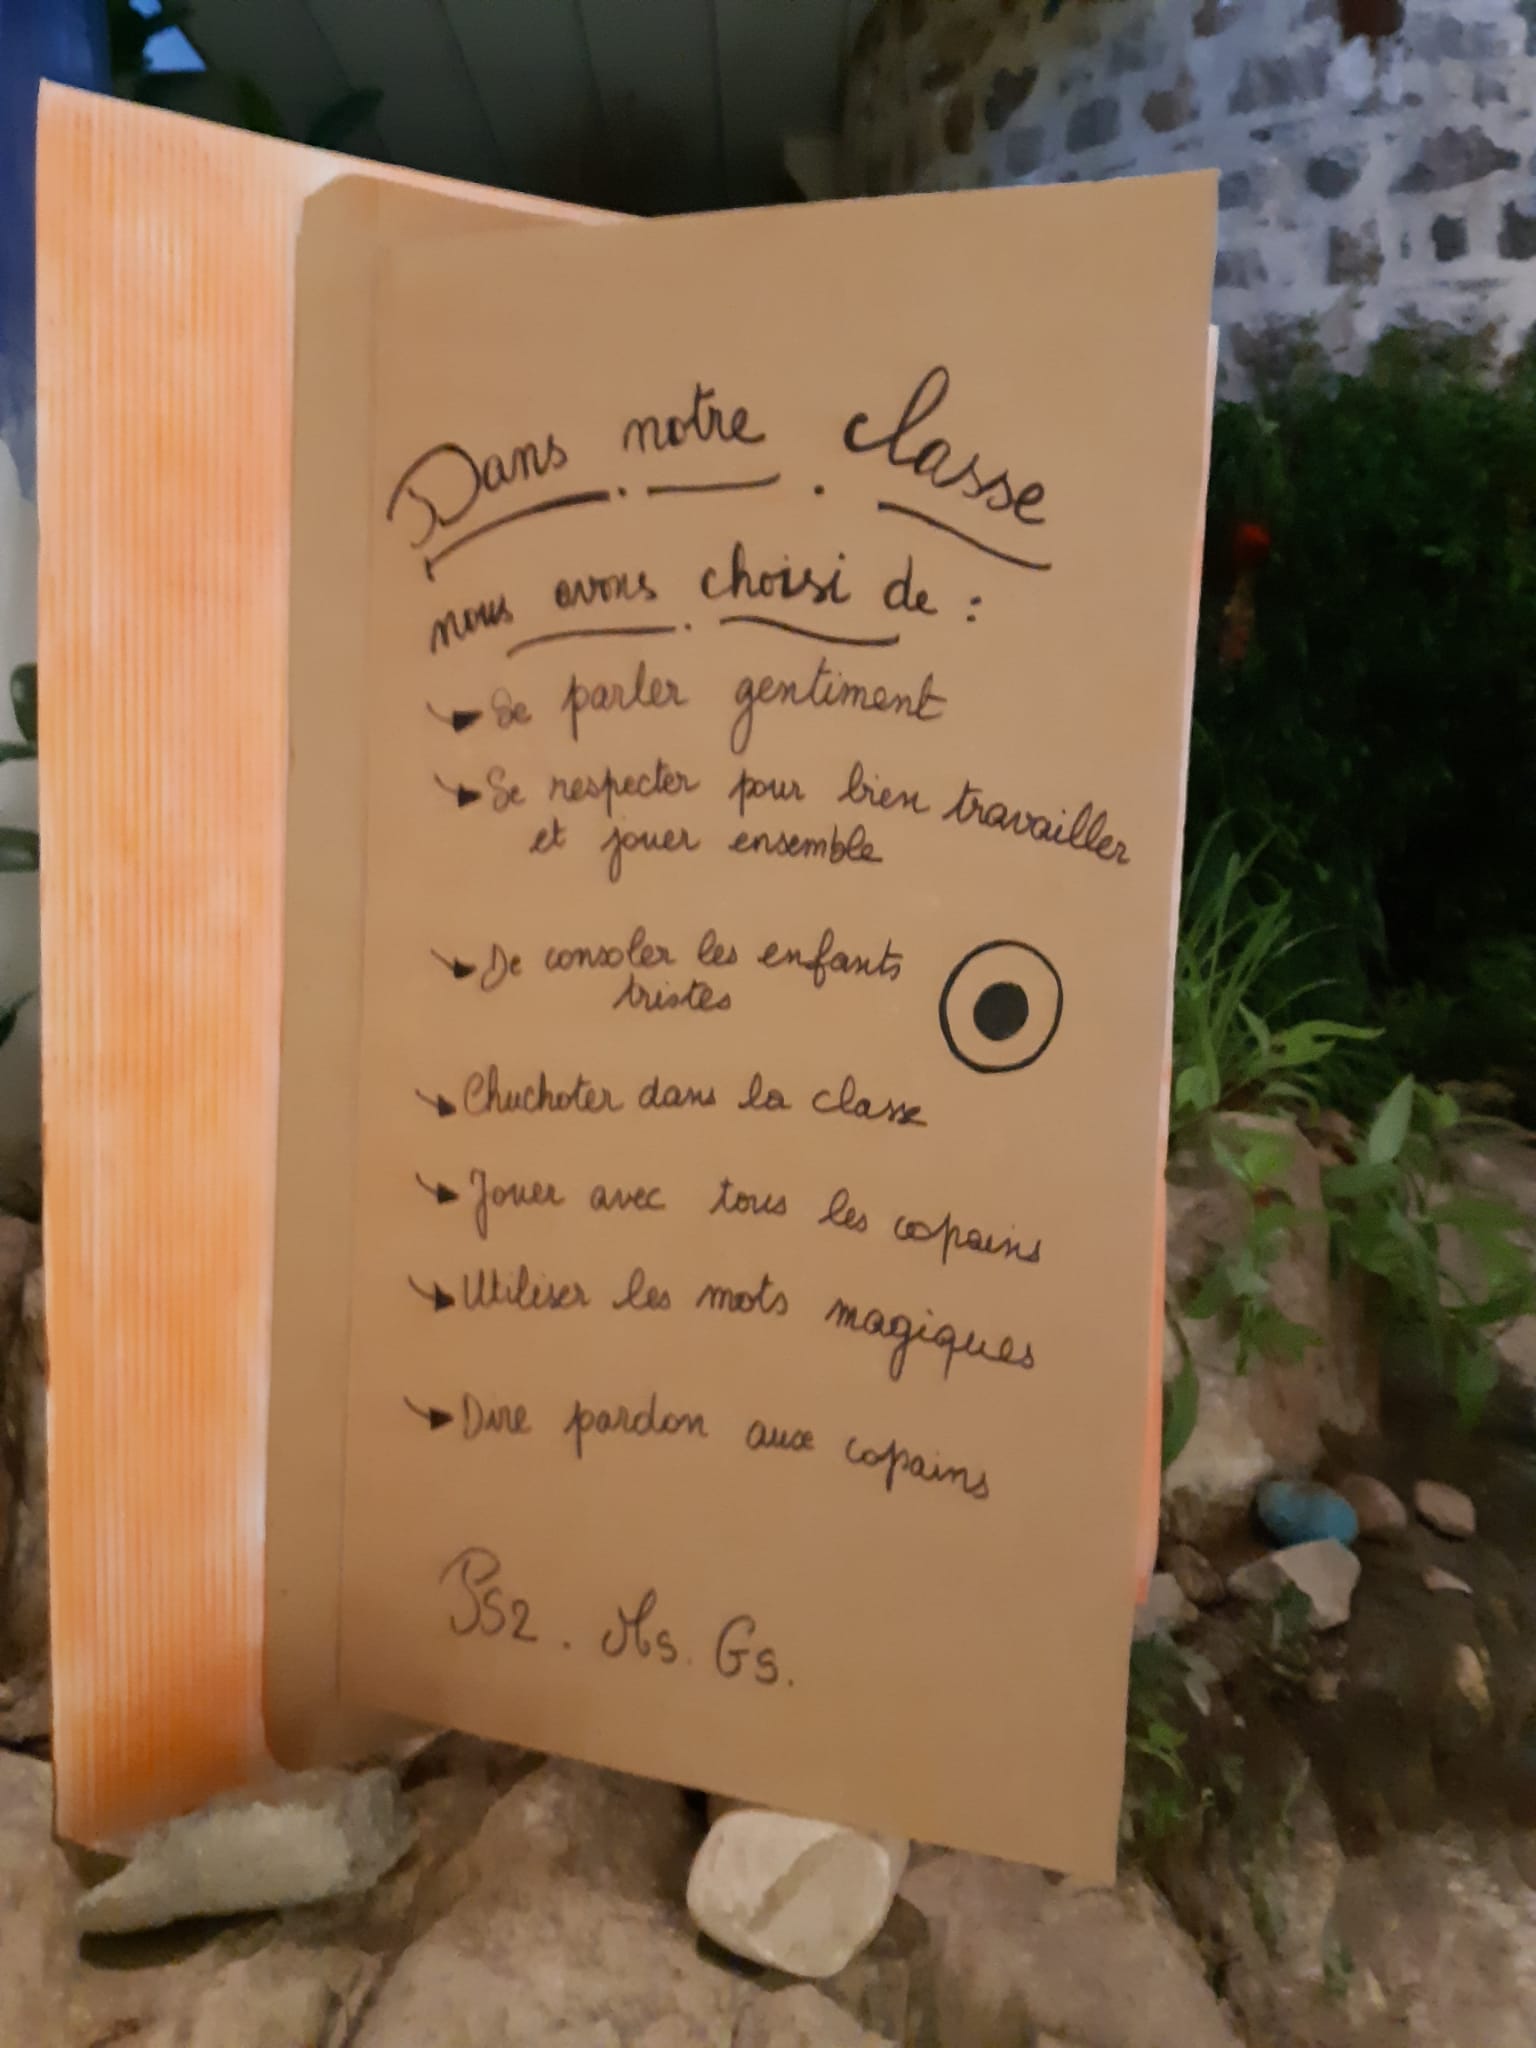 Dans notre classe
nous avons choisi de :
Se parler gentiment
Se respecter pour bien travailler
et jouer ensemble
De consoler les enfants
tristes
Chuchoter dans la classe
Jouer avec tous les copains
Utiliser les mots magiques
Dire pardon aux copains
PS2. Ms. Gs.